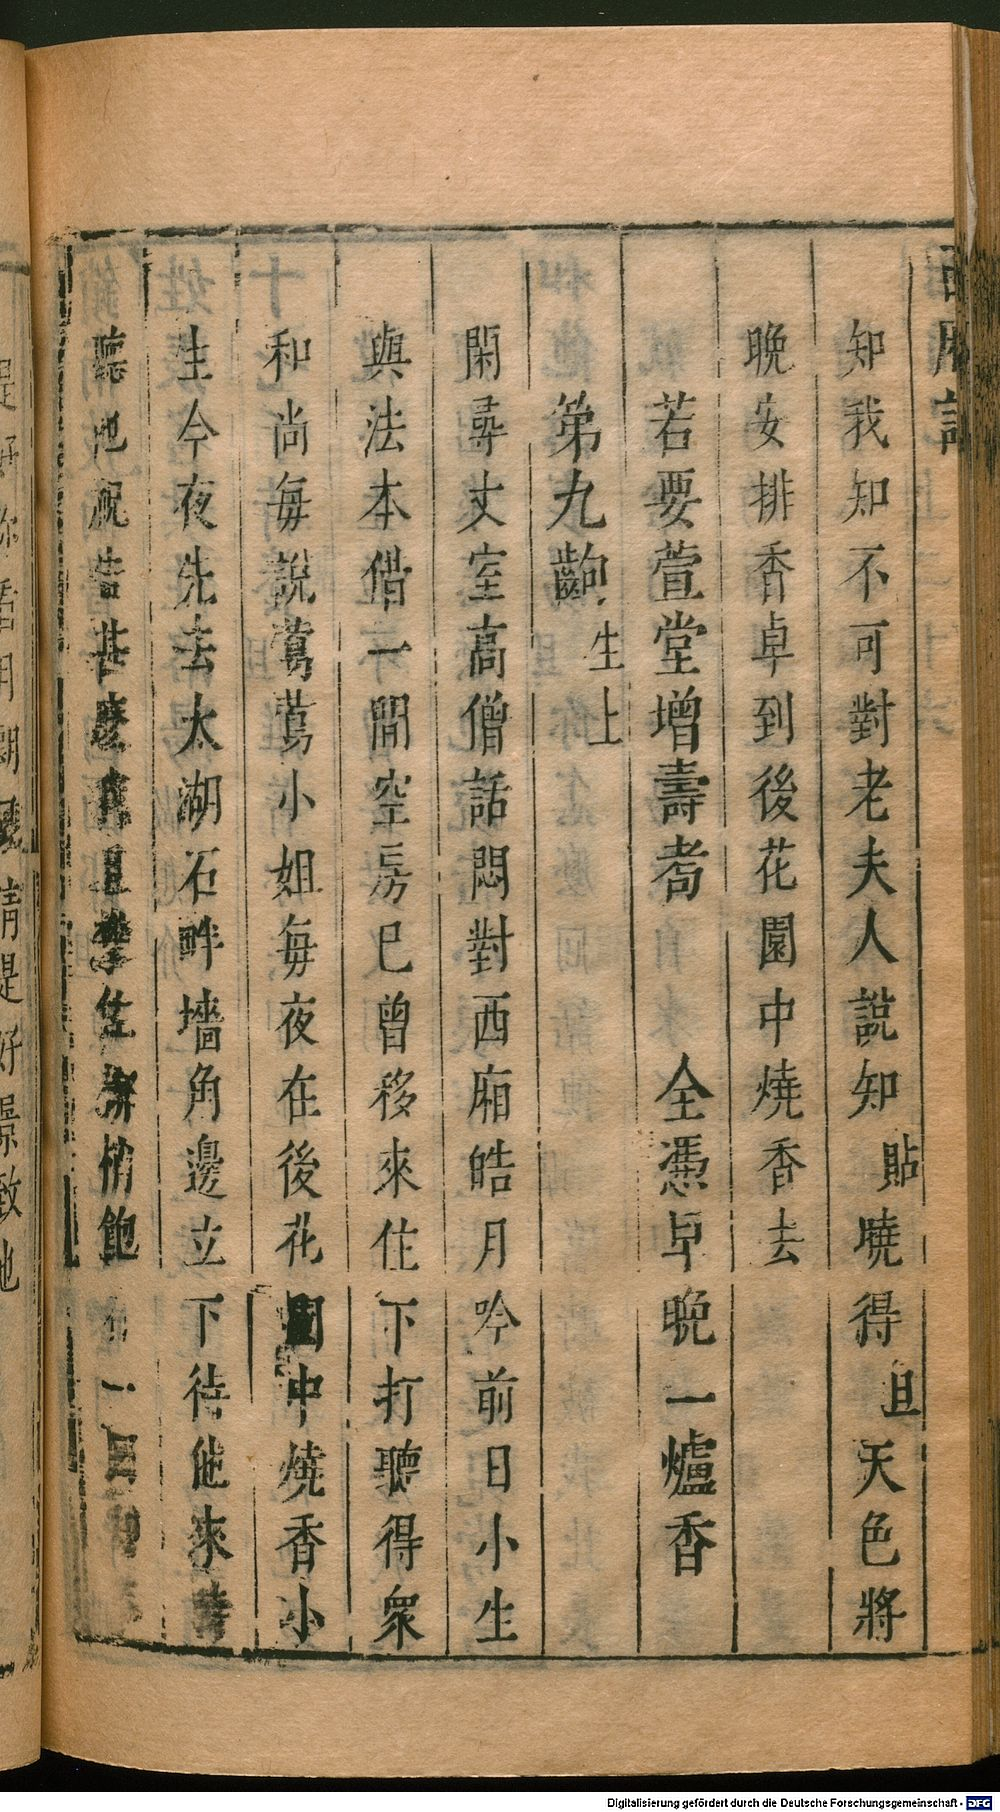 西廂記
知我知不可對老夫人說知貼曉得旦天色將
晚安排香卓到後花園中燒香去
若要萱堂增壽耈 全憑早晚一爐香
第九齣 生上
閑尋丈室高僧話悶對西廂皓月吟前日小生
與法本借一間空房已曾移來住下打聽得衆
和尚每說鶯鶯小姐每夜在後花園中燒香小
生今夜先去太湖石畔墻角邊立下待他來時
聽他祝告甚麽 飽 一
Digitalisierung gefördert durch die Deutsche Forschungsgemeinschaft - DFG